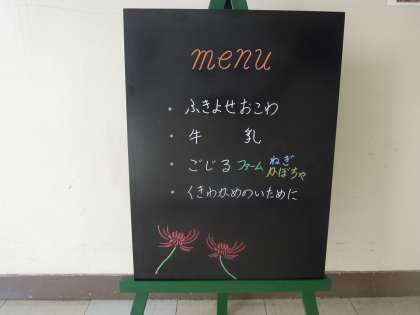 menu
・ふきよせおこわ
・牛乳
・ごじる ファーム ねぎ かぼちゃ
・くきわかめのいために